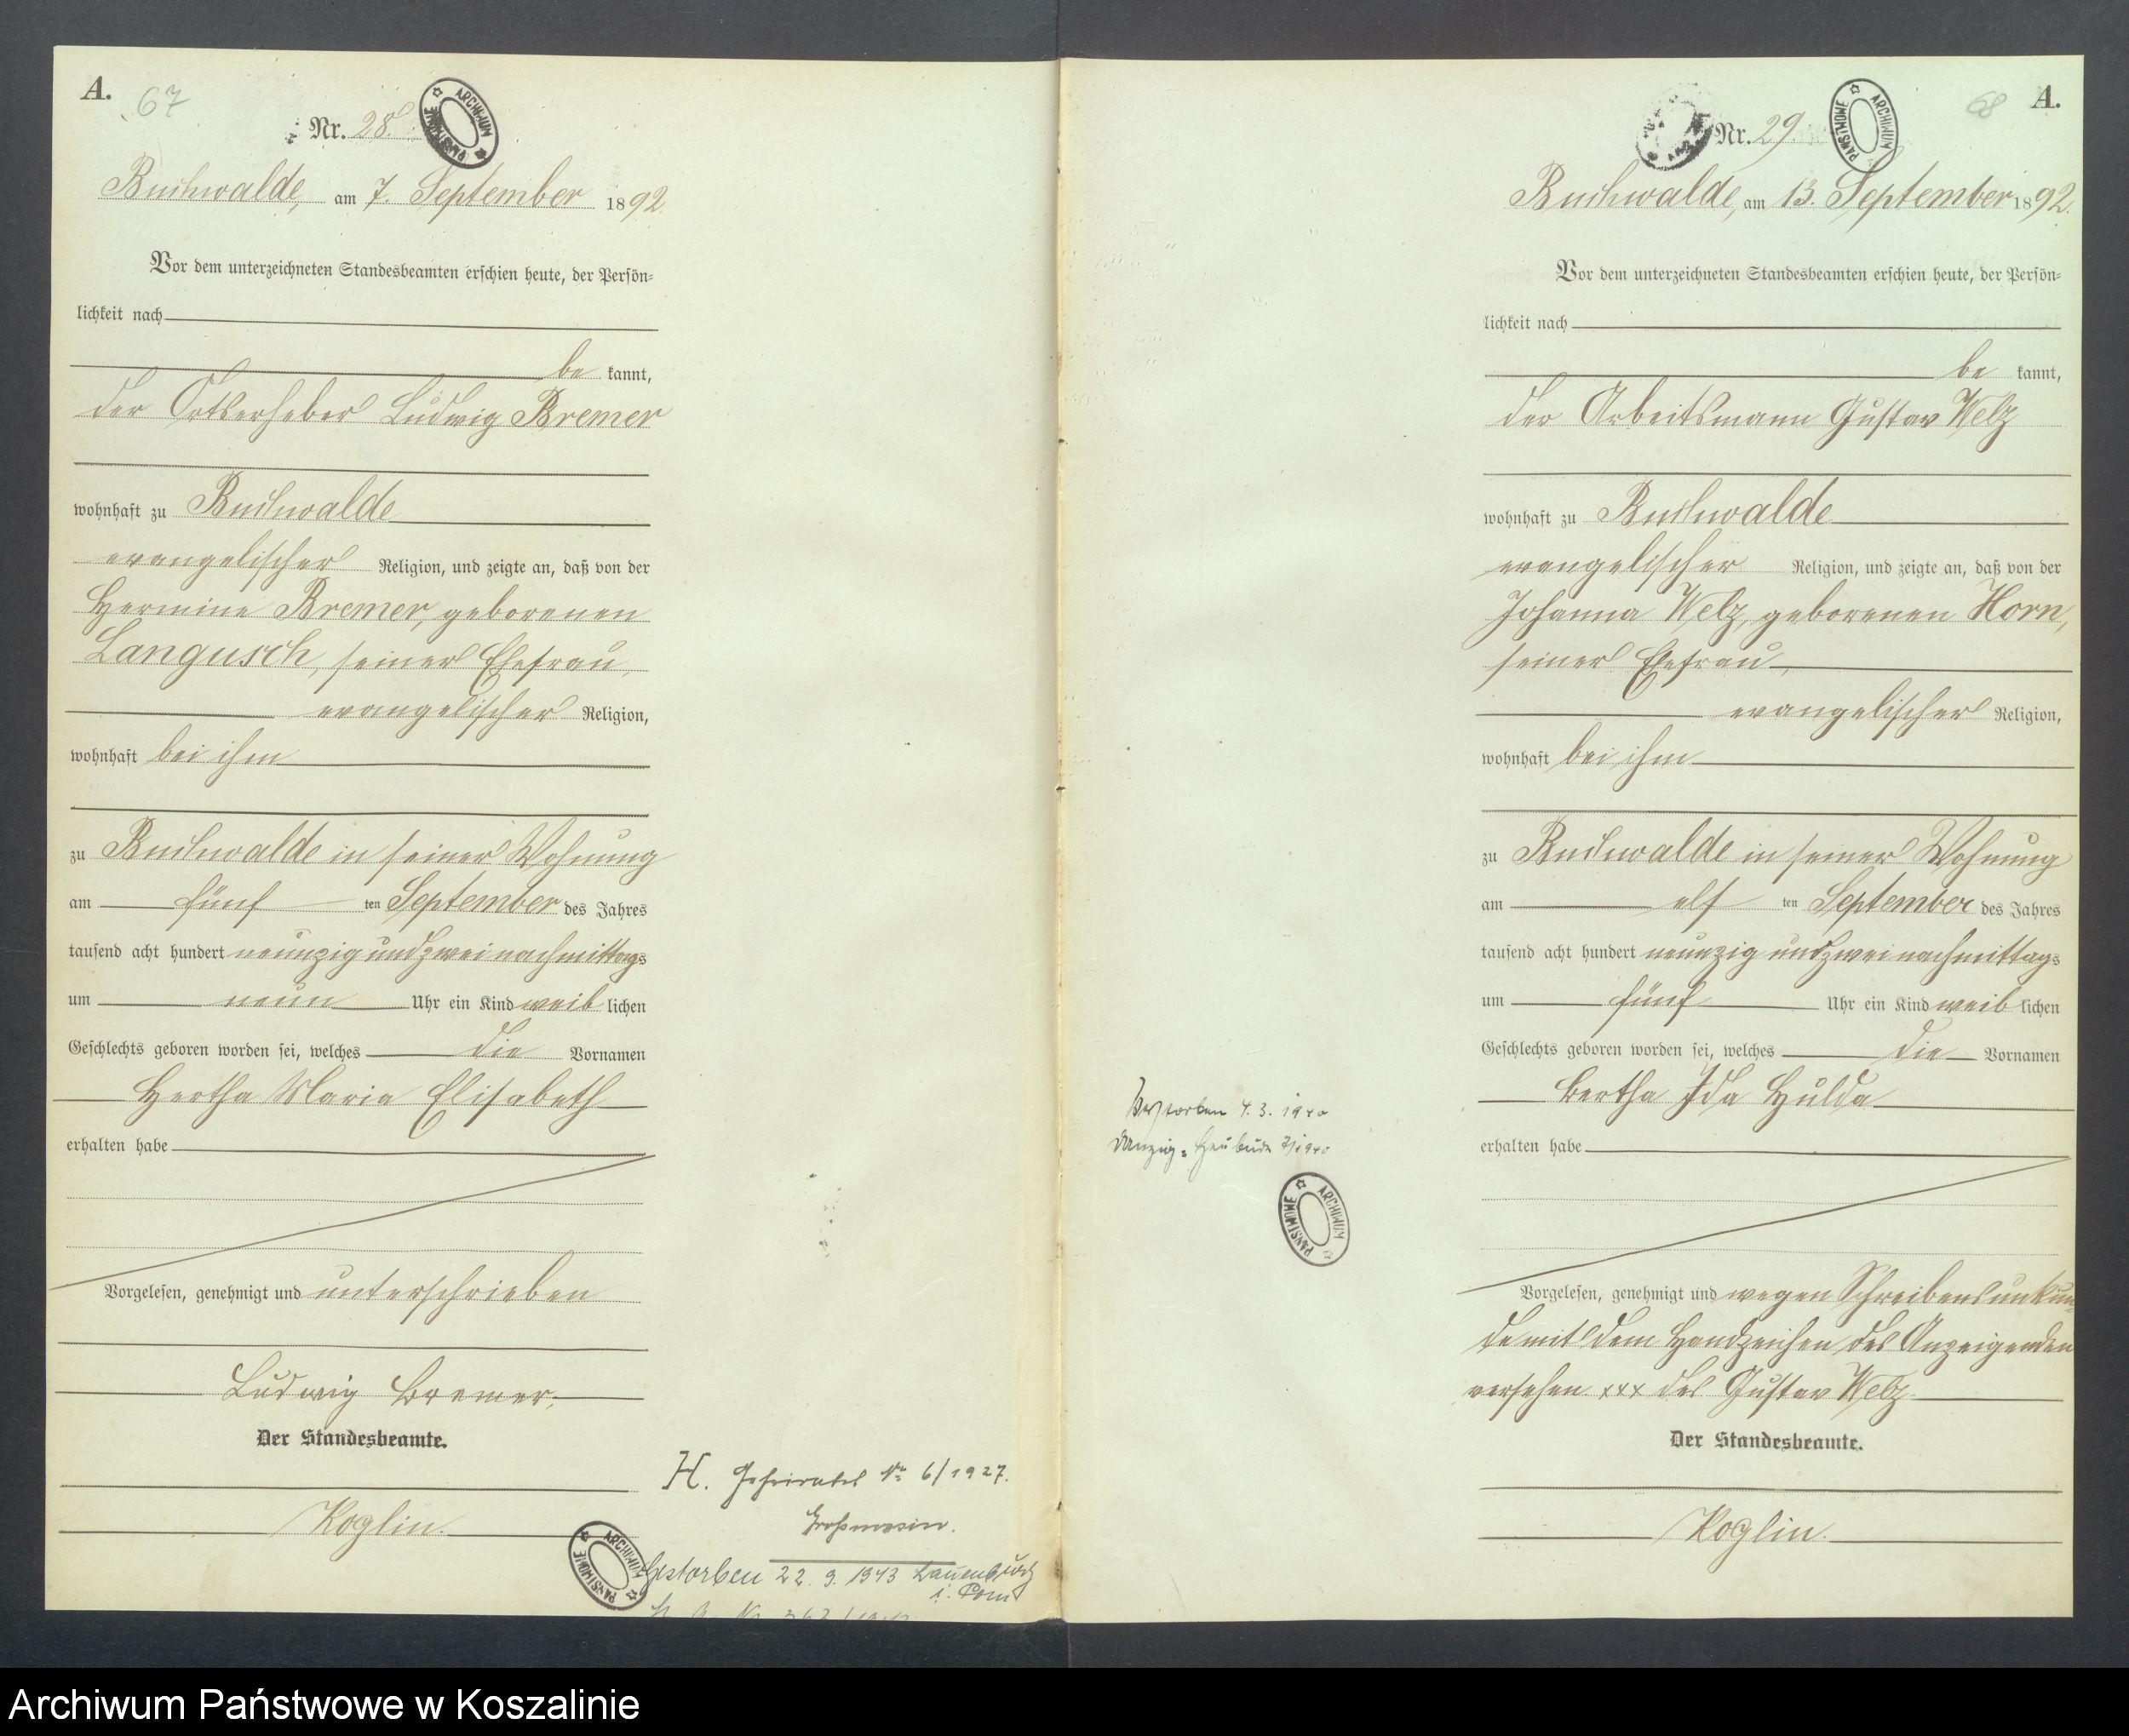 A.
67
Nr. 28.
ARCHIWUM PAŃSTWOWE
Buchwalde, am 7. September 1892.
Vor dem unterzeichneten Standesbeamten erschien heute, der Persön-
lichkeit nach
be kannt,
der Ortserheber Ludwig Bremer
wohnhaft zu Buchwalde
evangelischer Religion, und zeigte an, daß von der
Hermine Bremer, geborenen
Langusch, seiner Ehefrau,
evangelischer Religion,
wohnhaft bei ihm
zu Buchwalde in seiner Wohnung
am fünf ten September des Jahres
tausend acht hundert neunzig und zwei nachmittags
um neun Uhr ein Kind weib lichen
Geschlechts geboren worden sei, welches die Vornamen
Hertha Maria Elisabeth
erhalten habe
Vorgelesen, genehmigt und unterschrieben
Ludwig Bremer.
Der Standesbeamte.
Koglin.
ARCHIWUM PAŃSTWOWE
H. Geheiratet Nr. 6/1927.
Großmassow.
Gestorben 22. 9. 1943 Lauenburg
i. Pom
A.
68
Nr. 29.
ARCHIWUM PAŃSTWOWE
Buchwalde, am 13. September 1892.
Vor dem unterzeichneten Standesbeamten erschien heute, der Persön-
lichkeit nach
be kannt,
der Arbeitsmann Gustav Welz
wohnhaft zu Buchwalde
evangelischer Religion, und zeigte an, daß von der
Johanna Welz, geborenen Horn,
seiner Ehefrau,
evangelischer Religion,
wohnhaft bei ihm
zu Buchwalde in seiner Wohnung
am elf ten September des Jahres
tausend acht hundert neunzig und zwei nachmittags
um fünf Uhr ein Kind weib lichen
Geschlechts geboren worden sei, welches die Vornamen
Bertha Ida Hulda
erhalten habe
Vorgelesen, genehmigt und wegen Schreibensunkun-
de mit dem Handzeichen des Anzeigenden
versehen. xxx des Gustav Welz
Der Standesbeamte.
Koglin.
Verstorben 4. 3. 1940
Danzig-Heubude 7/1940
ARCHIWUM PAŃSTWOWE
Archiwum Państwowe w Koszalinie